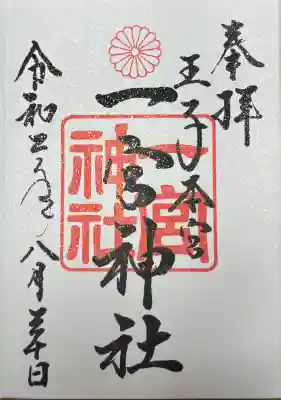 奉拝
王子本宮
一宮神社
一宮
神社
令和五年八月三十日